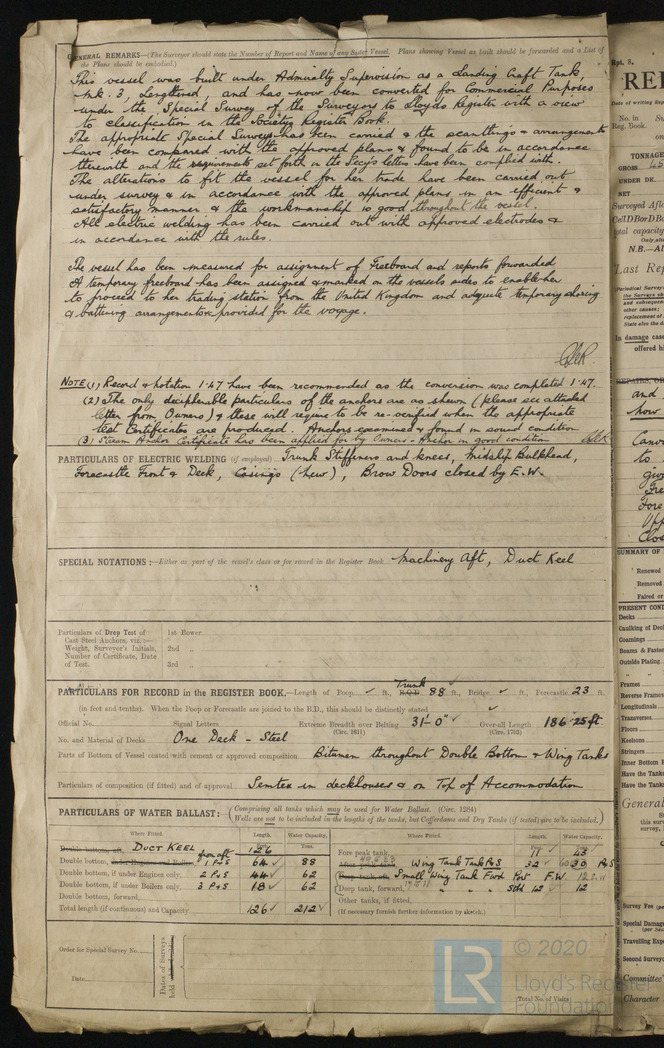 GENERAL REMARKS—(The Surveyor should state the Number of Report and Name of any Sister Vessel. Plans showing Vessel as built should be forwarded and a List of
the Plans should be embodied.)
This vessel was built under Admiralty Supervision as a Landing Craft Tank,
Mk. 3, Lengthened, and has now been converted for Commercial Purposes
under the Special Survey of the Surveyors to Lloyds Register with a view
to classification in the Society Register Book.
The appropriate Special Surveys has been carried & the scantlings & arrangements
have been compared with the approved plans & found to be in accordance
therewith and the requirements set forth in the Secys letters have been complied with.
The alterations to fit the vessel for her trade have been carried out
under survey & in accordance with the approved plans in an efficient &
satisfactory manner & the workmanship is good throughout the vessel.
All electric welding has been carried out with approved electrodes &
in accordance with the rules.
The vessel has been measured for assignment of Freeboard and reports forwarded
A temporary freeboard has been assigned & marked on the vessels sides to enable her
to proceed to her trading station from the United Kingdom and adequate temporary shoring
& battening arrangements provided for the voyage.
NOTE (1) Record & notation 1.47 have been recommended as the conversion was completed 1.47.
(2) The only decipherable particulars of the anchors are as shewn (please see attached
letter from Owners) & these will require to be re-verified when the appropriate
test certificates are produced. Anchors examined & found in sound condition
(3) Steam Anchor Certificate has been applied for by Owners - Anchor in good condition
PARTICULARS OF ELECTRIC WELDING (if employed) Trunk Stiffeners and knees, Midship Bulkhead,
Forecastle Front & Deck, Casings (new), Brow Doors closed by E.W.
SPECIAL NOTATIONS:—Either as part of the vessel's class or for record in the Register Book Machinery Aft, Duct Keel
Particulars of Drop Test of
Cast Steel Anchors, viz.:—
Weight, Surveyor's Initials,
Number of Certificate, Date
of Test.
1st Bower
2nd „
3rd „
Trunk
PARTICULARS FOR RECORD in the REGISTER BOOK.—Length of Poop ✓ ft., R.Q.D. 88 ft., Bridge ✓ ft., Forecastle 23 ft.
(in feet and tenths). When the Poop or Forecastle are joined to the B.D., this should be distinctly stated ✓
Official No. Signal Letters Extreme Breadth over Belting 31'-0" ✓ Over-all Length 186.25 ft
(Circ. 1611) (Circ. 1703)
No. and Material of Decks One Deck - Steel
Parts of Bottom of Vessel coated with cement or approved composition Bitumen throughout Double Bottom & Wing Tanks
Particulars of composition (if fitted) and of approval Semtex in deckhouses & on Top of Accommodation
PARTICULARS OF WATER BALLAST:—(Comprising all tanks which may be used for Water Ballast. (Circ. 1284)
Wells are not to be included in the lengths of the tanks, but Cofferdams and Dry Tanks (if tested) are to be included.)
Where Fitted. Length. Water Capacity. Where Fitted. Length. Water Capacity.
Double bottom, aft, DUCT KEEL 126 Tons. Fore peak tank, 11 ✓ 43
from aft
Double bottom, under Engines and Boilers 1 P&S 64 ✓ 88 After peak tank, Wing Tank Tank P&S 32 ✓ 30 P&S
Double bottom, if under Engines only, 2 P&S 44 ✓ 62 Deep tank, aft, Small Wing Tank Fwd Port F.W. 12
Double bottom, if under Boilers only, 3 P&S 18 ✓ 62 Deep tank, forward, „ „ „ Stbd 12 ✓ 12
Double bottom, forward, Other tanks, if fitted,
Total length (if continuous) and Capacity 126 ✓ 212 ✓ (If necessary furnish further information by sketch.)
Order for Special Survey No.
Date
Dates of Surveys
held
Total No. of Visits
LR
© 2020
Lloyd's Register
Foundation
Rpt. 8.
Date of writing Rep
No. in
Reg. Book.
TONNAGE
GROSS
UNDER DK.
NET
Surveyed Afl
Cell D Bor D Bo
total capacity
N.B.—Al
Last Rep
Periodical Survey
the Surveys sh
and subsequent
other causes;
replacement of
State also the d
In damage case
offered hi
REPAIRS, OR
and
how
to
SUMMARY OF
Renewed
Removed
Faired or
PRESENT COND
Decks
Caulking of Deck
Coamings
Beams & Fasten
Outside Plating
Frames
Reverse Frames
Longitudinals
Transverses
Floors
Keelsons
Stringers
Inner Bottom
Have the Tanks
Have the Tanks
General
this surv
survey,
Survey Fee (per
Special Damage
Travelling Expe
Second Surveyo
Committee'
Character